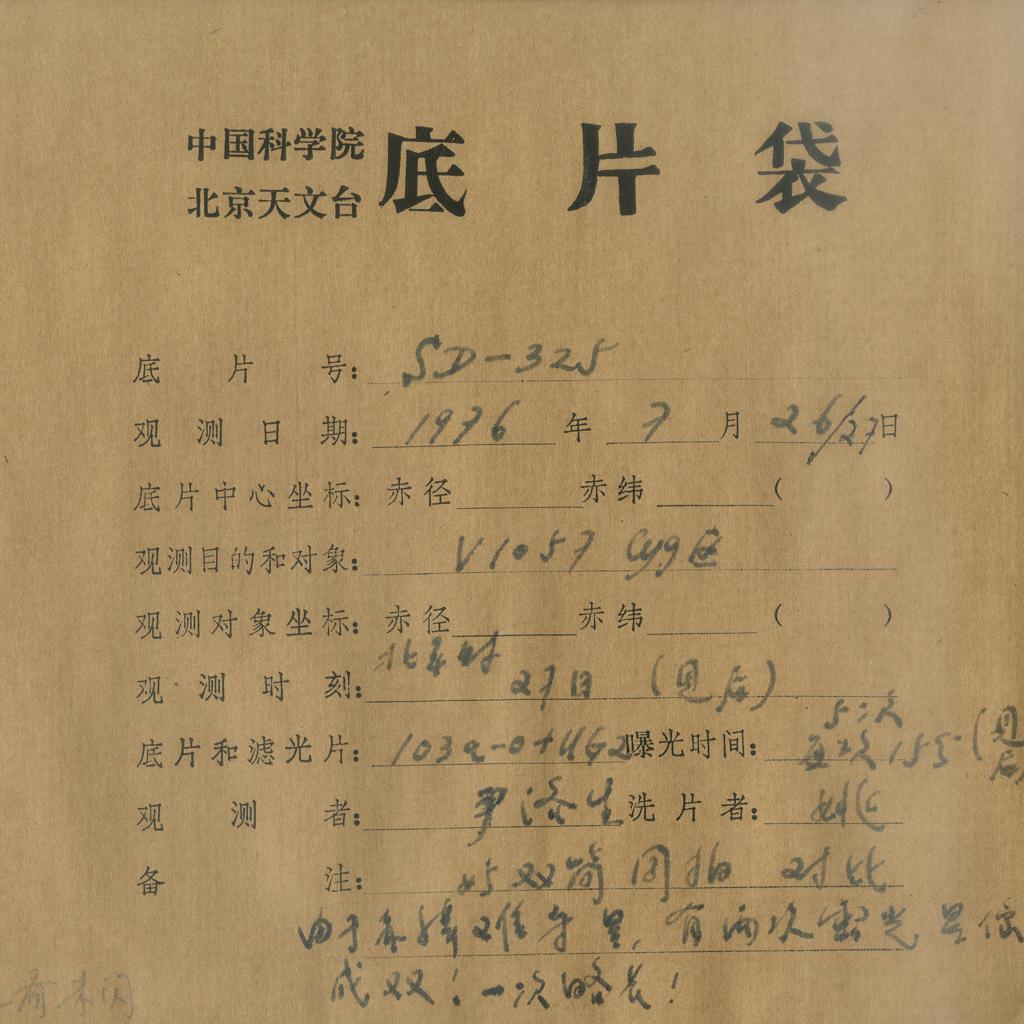 中国科学院
北京天文台
底片袋
底片号: SD-325
观测日期: 1976年7月26/27日
底片中心坐标: 赤径 赤纬 ( )
观测目的和对象: V1057 Cyg区
观测对象坐标: 赤径 赤纬 ( )
北京时
观测时刻: 27日 (见后)
5次
底片和滤光片: 103a-O+UG2 曝光时间: 每次15s (见后)
观测者: 洗片者: 姚
备注: 双筒同拍 对比
由于赤 难 有两次露光 星像
成双! 一次略长!